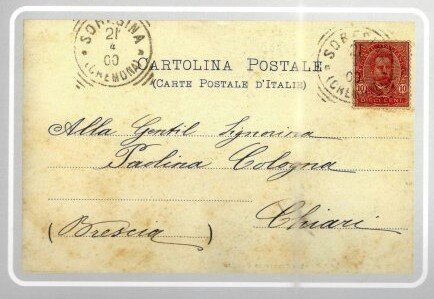 SORESINA
21
4
00
(CREMONA)
SORES
21
00
(CREMON
CARTOLINA POSTALE
(CARTE POSTALE D'ITALIE)
10 10
Alla Gentil Signorina
Paolina Cologna
Chiari
(Brescia)